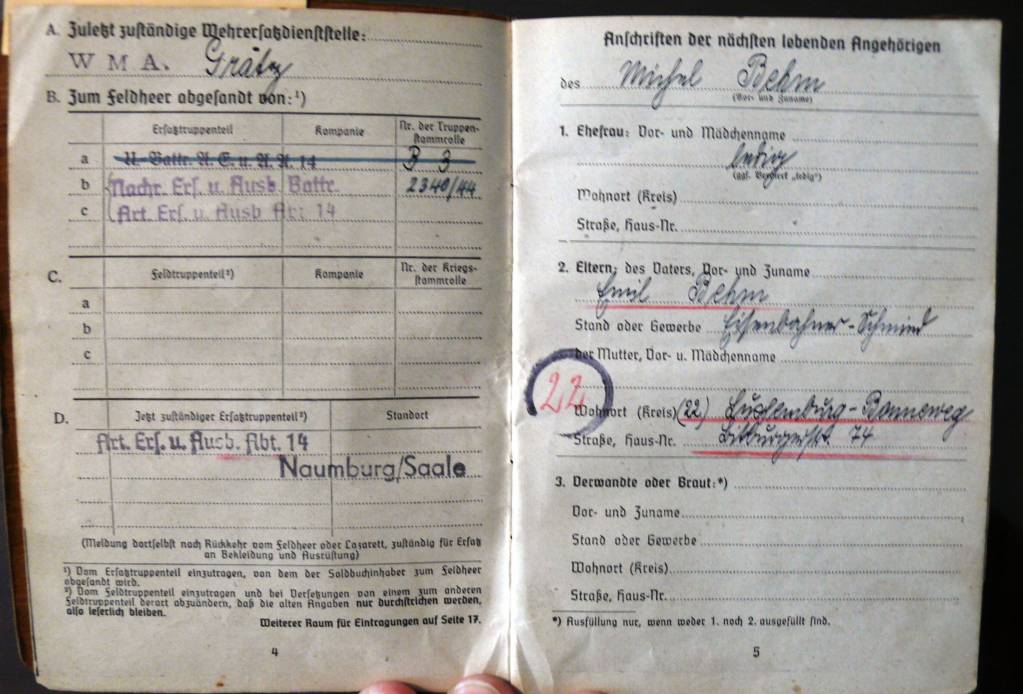 A. Zuletzt zuständige Wehrersatzdienststelle:
W M A. Grätz
B. Zum Feldheer abgesandt von:¹)
Ersatztruppenteil Kompanie Nr. der Truppen-
stammrolle
a 14 B 3
b Nachr. Ers. u. Ausb. Battr. 2340/44
c Art. Ers. u. Ausb Abt 14
C. Feldtruppenteil²) Kompanie Nr. der Kriegs-
stammrolle
a
b
c
D. Jetzt zuständiger Ersatztruppenteil²) Standort
Art. Ers. u. Ausb. Abt. 14
Naumburg/Saale
(Meldung dortselbst nach Rückkehr vom Feldheer oder Lazarett, zuständig für Ersatz
an Bekleidung und Ausrüstung)
¹) Vom Ersatztruppenteil einzutragen, von dem der Soldbuchinhaber zum Feldheer
abgesandt wird.
²) Vom Feldtruppenteil einzutragen und bei Versetzungen von einem zum anderen
Feldtruppenteil derart abzuändern, daß die alten Angaben nur durchstrichen werden,
also leserlich bleiben.
Weiterer Raum für Eintragungen auf Seite 17.
4
Anschriften der nächsten lebenden Angehörigen
des Michel Behm
(Vor- und Zuname)
1. Ehefrau: Vor- und Mädchenname
ledig
(ggf. Vermerk „ledig")
Wohnort (Kreis)
Straße, Haus-Nr.
2. Eltern: des Vaters, Vor- und Zuname
Emil Behm
Stand oder Gewerbe Eisenbahner-Schmied
der Mutter, Vor- u. Mädchenname
22
Wohnort (Kreis) (22) Luxemburg-Bonneweg
Straße, Haus-Nr. Bitburgerstr. 74
3. Verwandte oder Braut:*)
Vor- und Zuname
Stand oder Gewerbe
Wohnort (Kreis)
Straße, Haus-Nr.
*) Ausfüllung nur, wenn weder 1. noch 2. ausgefüllt sind.
5